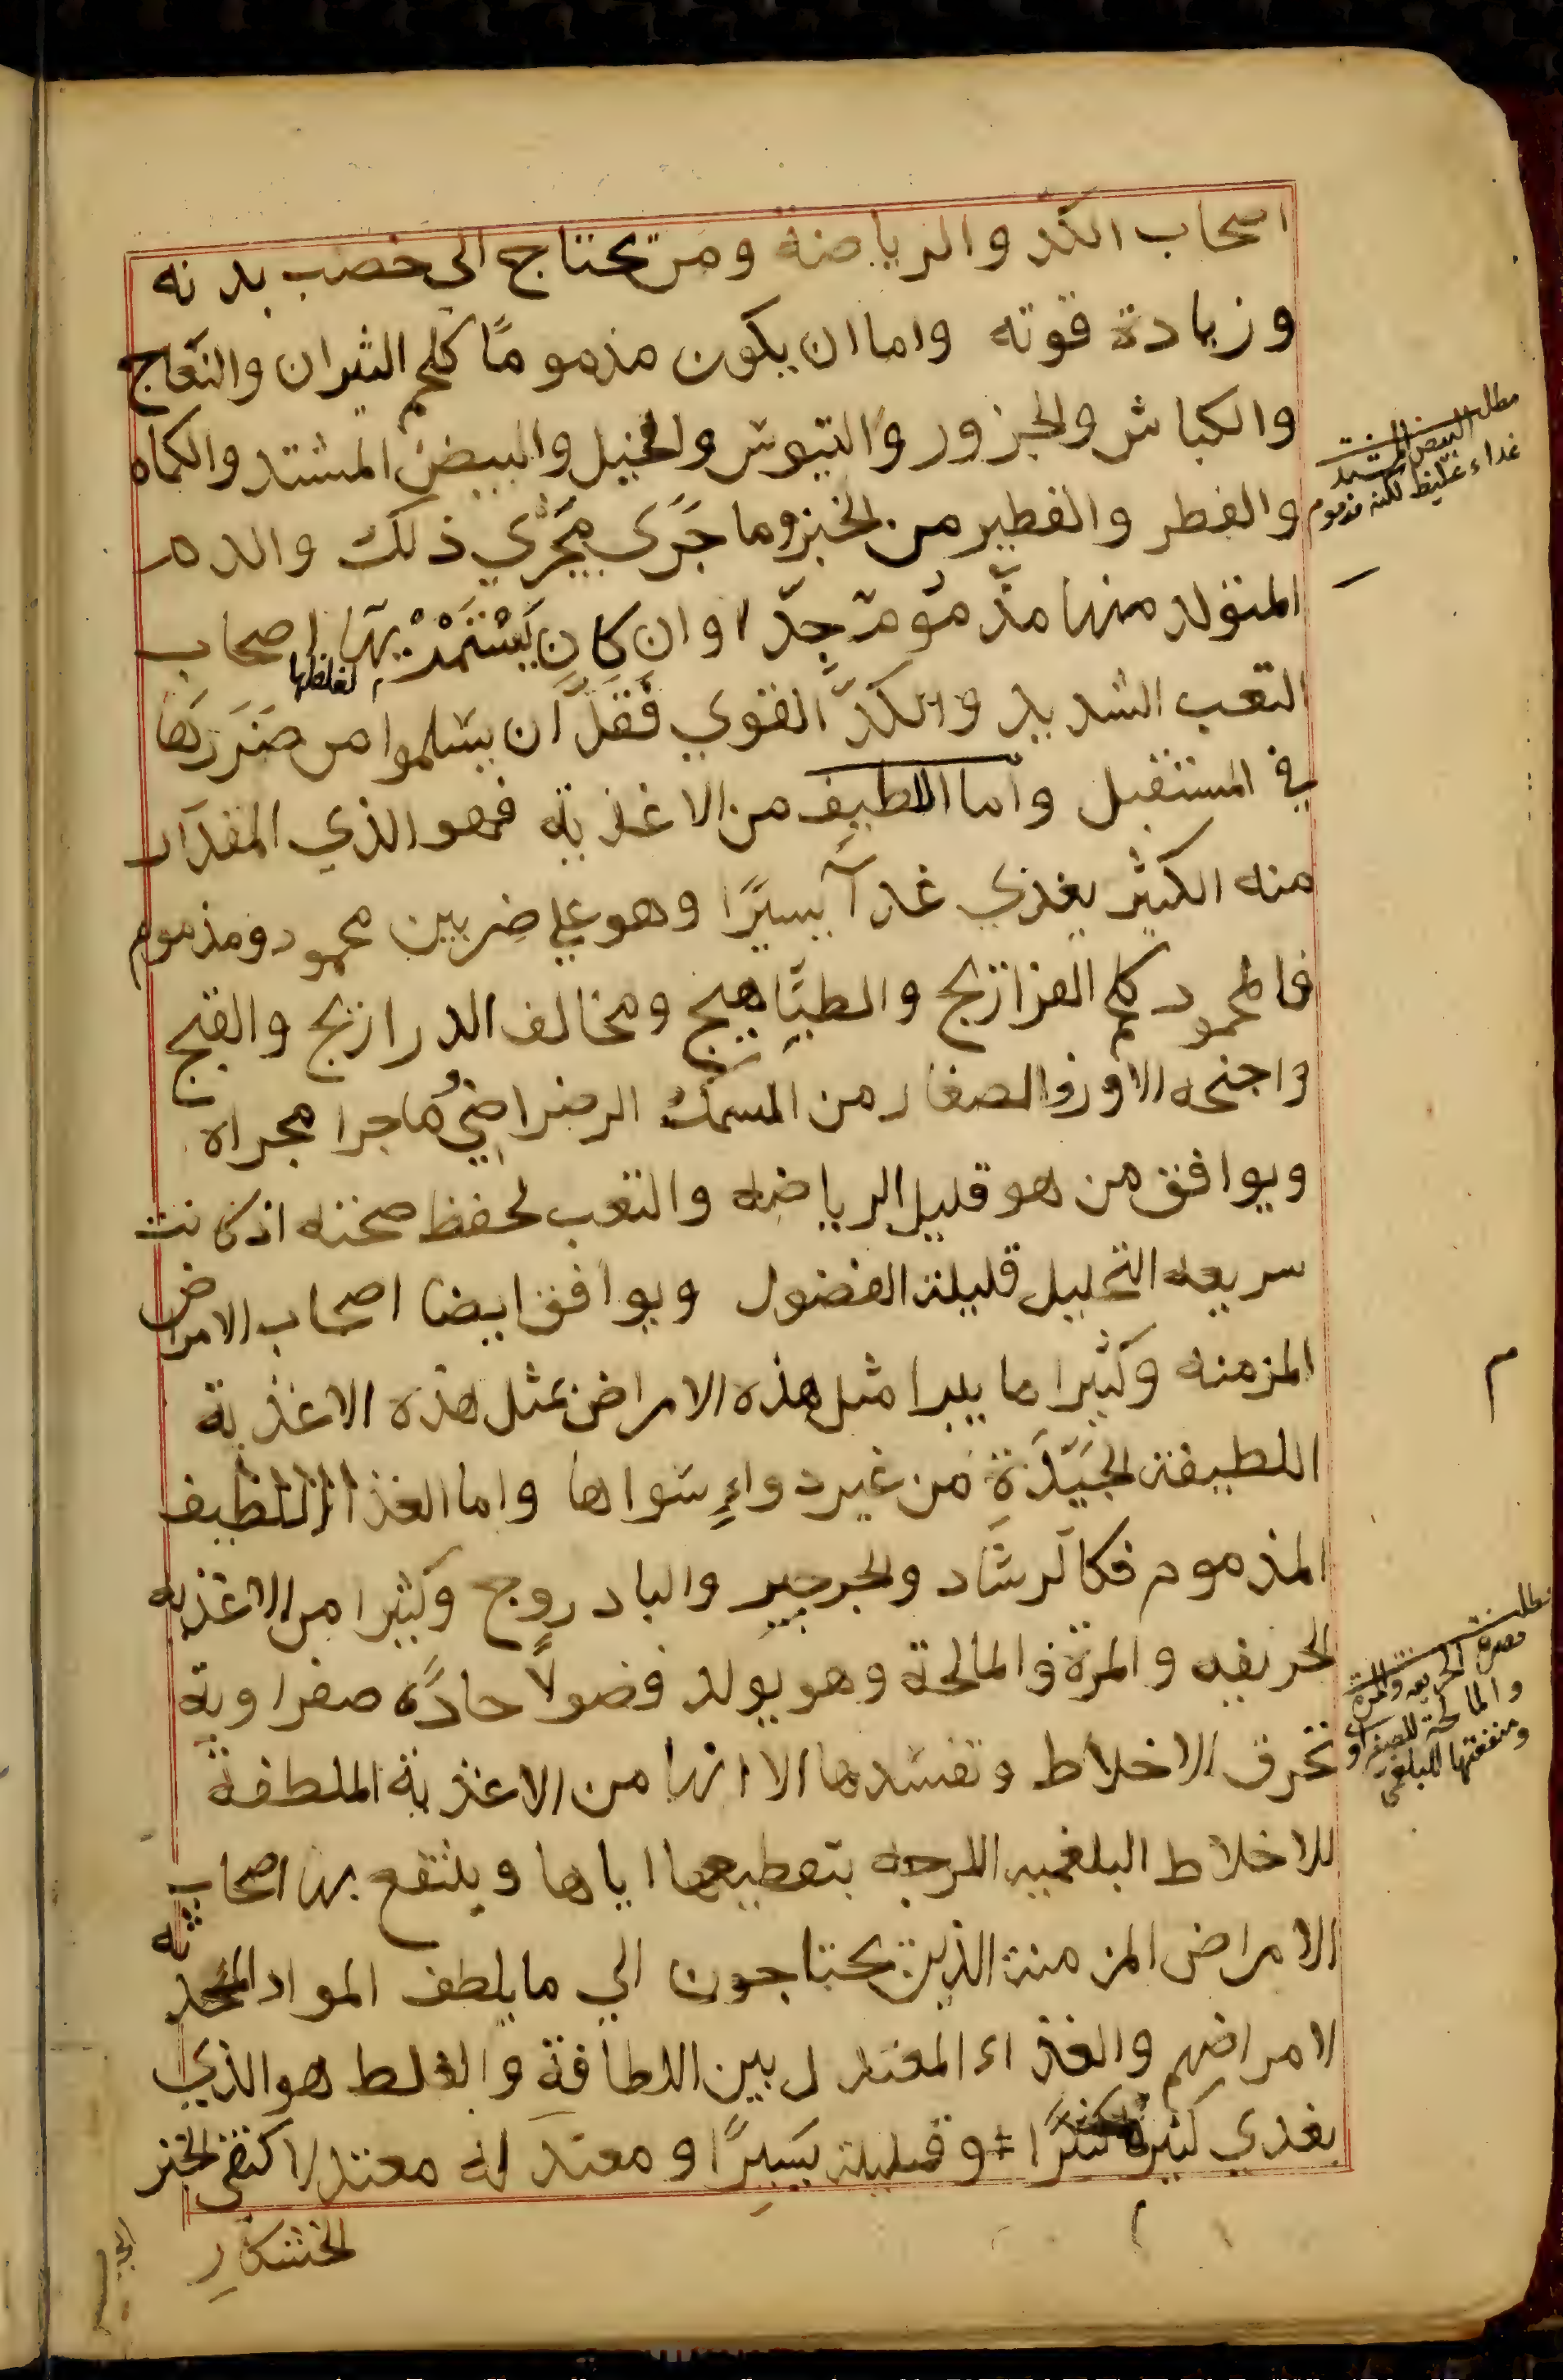 اصحاب الكد والرياضة ومن يحتاج الى خصب بدنه
وزيادة قوته واما ان يكون مذموماً كلحم الثيران والنعاج
والكباش والجزور والتيوس والخيل والبيض المشتد والكماه
والفطر والفطير من الخبز وما جَرَي مجَرْي ذلك والدم
المتولد منها مذموم جدّا وان كان يَسْتَمْد بها اصحاب
لغلظها
التعب الشديد والكدّ القوي فَقَلَّ ان يسلموا من ضَرَرِها
في المستقبل وأما اللطيف من الاغذية فهو الذي المقدار
منه الكثير يغذي غدآ يسيرًا وهو علي ضربين محمود ومذموم
فالمحمود كلحم الفراريج والطيَاهيج ومخالف الدراريج والقبج
واجنحه الاوز والصغار من السمك الرضراضي وما جرا مجراه
ويوافق من هو قليل الرياضه والتعب لحفظ صحته اذ كانت
سريعه التحليل قليلة الفضول ويوافق ايضا اصحاب الامراض
المزمنه وكثيرا ما يبرا مثل هذه الامراض بمثل هذه الاغذية
اللطيفة الجَيّدَةِ من غير دواءٍ سواها واما الغذا اللطيف
المذموم فكالرشاد والجرجير والبادروج وكثيرا من الاغذيه
الحريفه والمرة والمالحة وهو يولد فضولًا حادًه صفراوية
تحرق الاخلاط وتفسدها الا انها من الاغذية الملطفة
للاخلاط البلغميه اللزجه بتقطيعها اياها وينتفع بها اصحاب
الامراض المزمنة الذين يحتاجون الي ما يلطف المواد المحدثه
لامراضهم والغذاء المعتدل بين اللطافة والغلط هو الذي
يغدي كثيره كثيرًا وقليلة يسيرًا ومعتدله معتدلا كنقي الخبز
الخشكار
مطلب البيض المشتد
غداء غليظ لكنه مذموم
مطلب
مضرة الحريفه والمرة
والمالحة للصفراوي
ومنفعتها للبلغمي